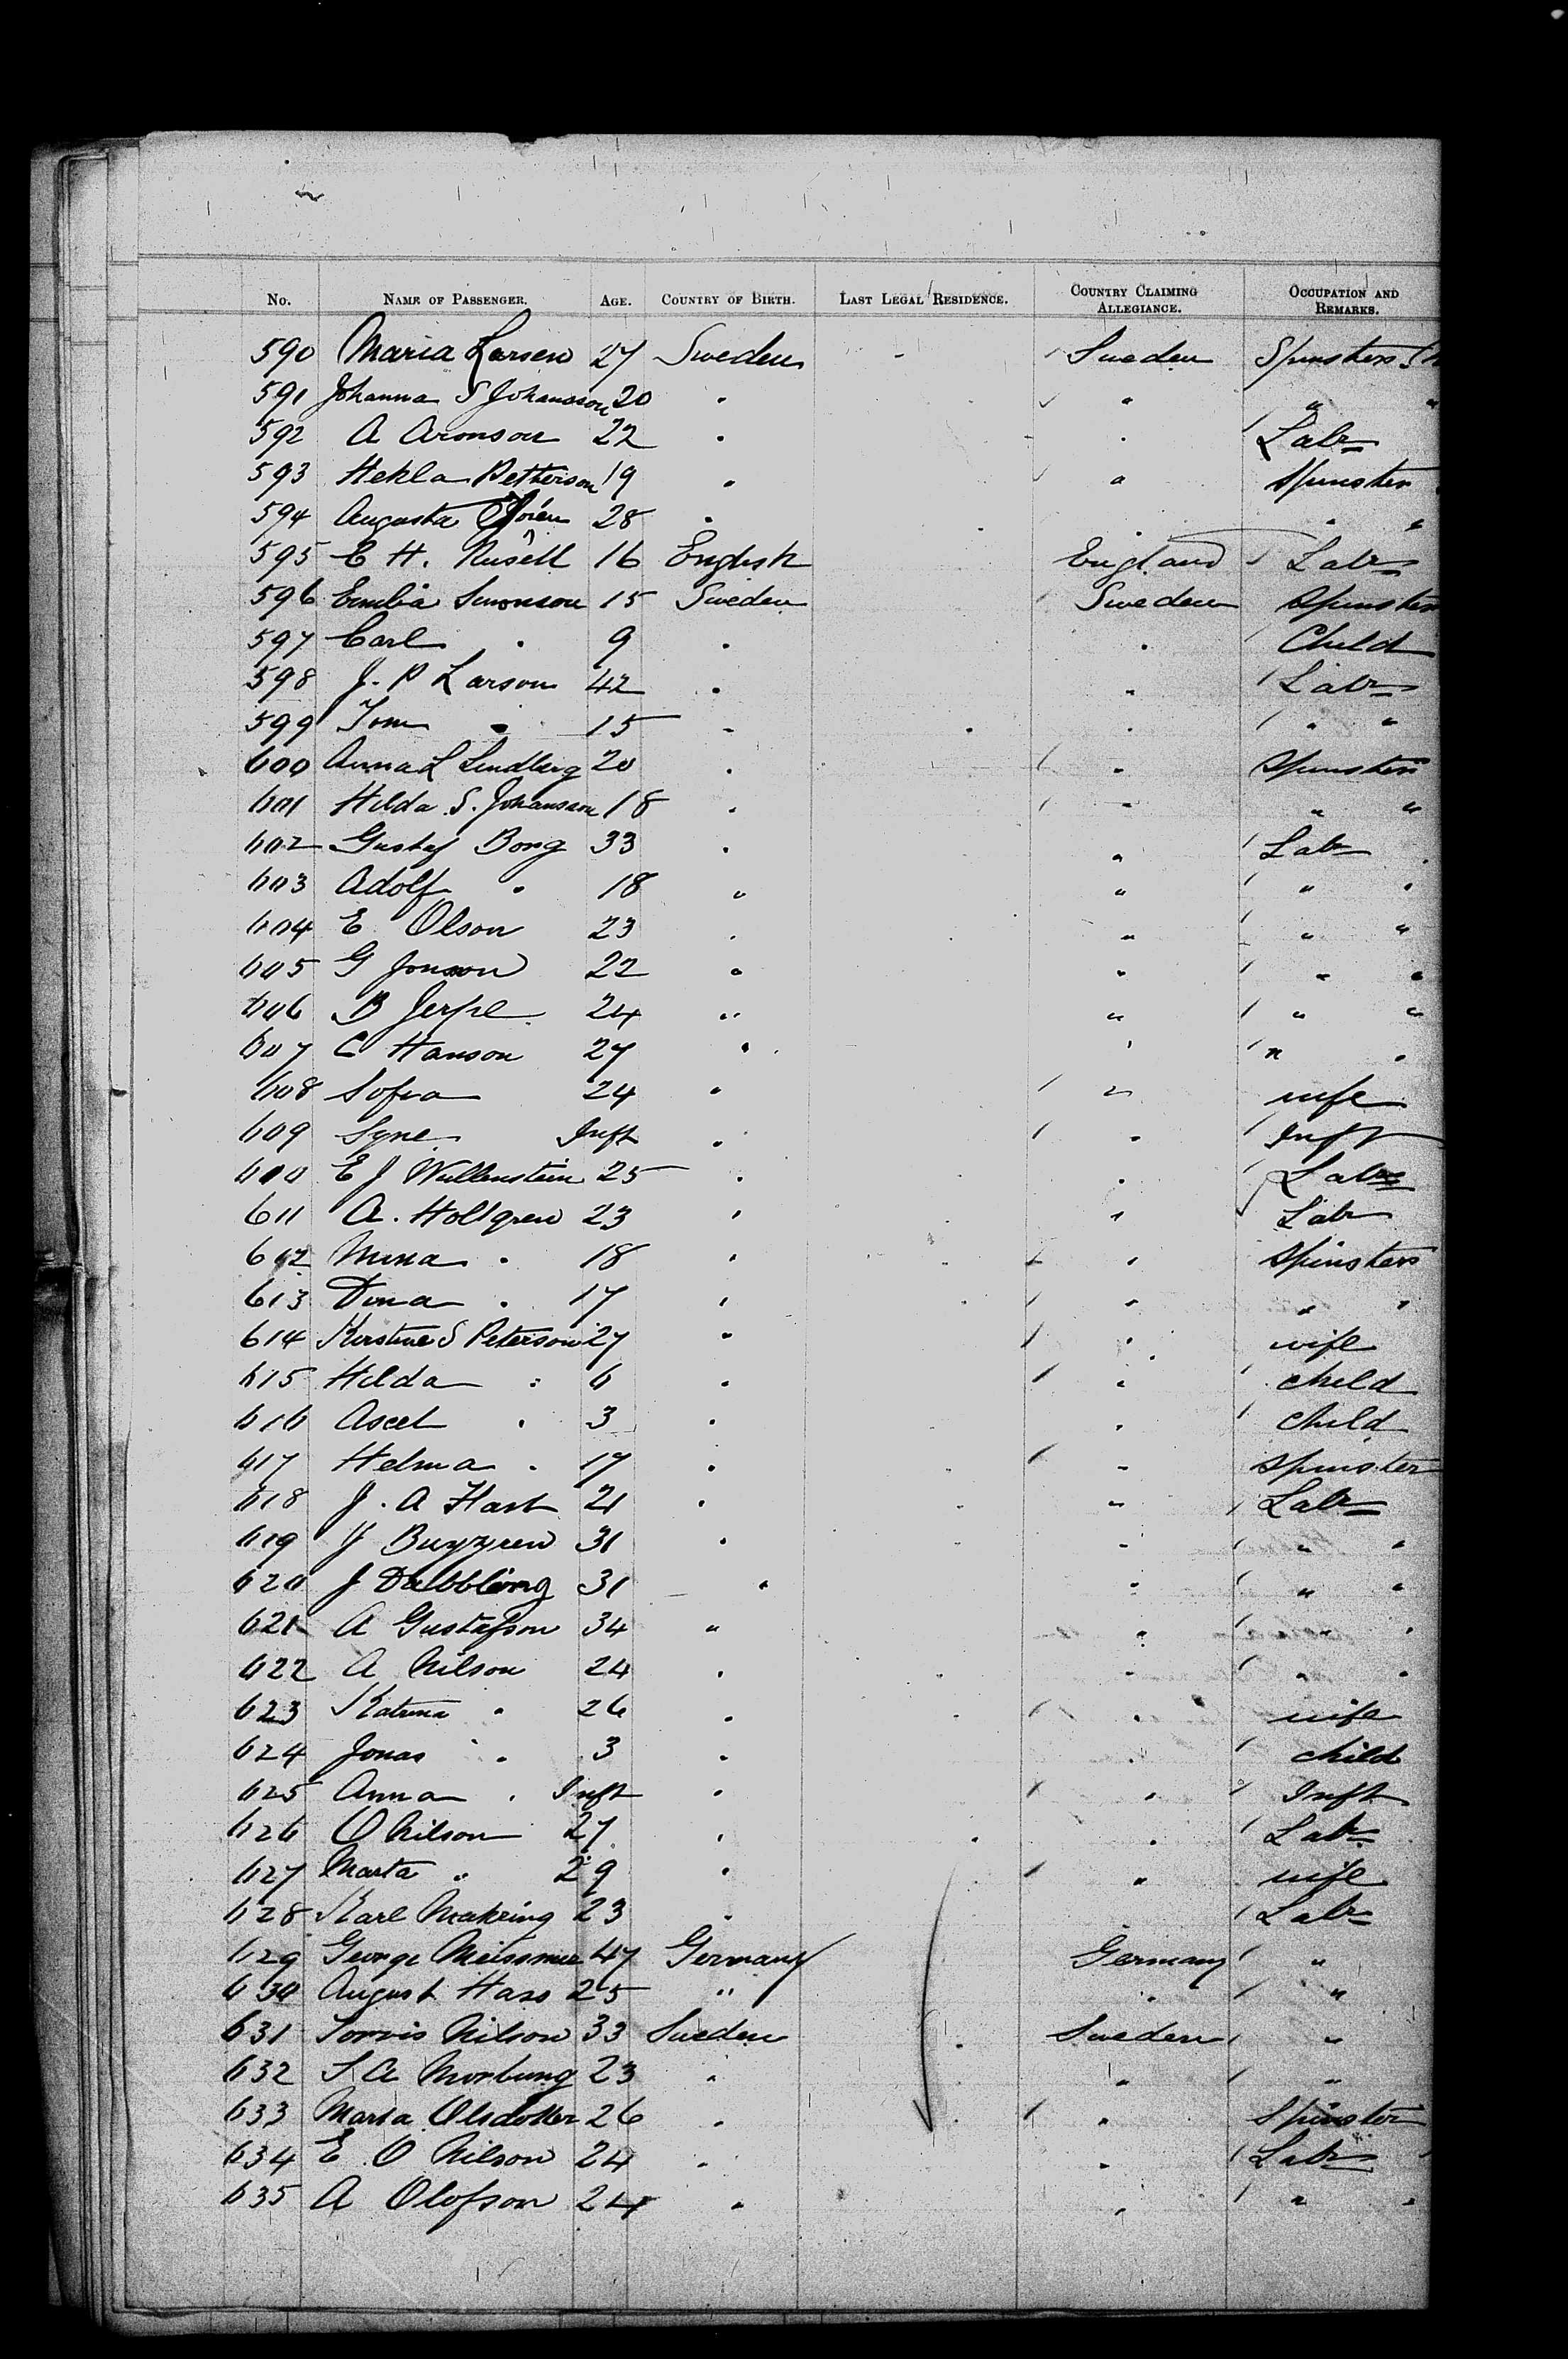 No. NAME OF PASSENGER. AGE. COUNTRY OF BIRTH. LAST LEGAL RESIDENCE. COUNTRY CLAIMING ALLEGIANCE. OCCUPATION AND REMARKS.
590 Maria Larsen 27 Sweden Sweden Spinsters
591 Johanna S Johansson 20 " " "
592 A Aronson 22 " " Labr
593 Hekla Petterson 19 " " Spinster
594 Augusta 28 " " "
595 E H. Rusell 16 English England Labr
596 Emilia Swonson 15 Sweden Sweden Spinster
597 Carl " 9 " " Child
598 J. P Larson 42 " " Labr
599 Tom " 15 " " " "
600 Anna L Lindberg 20 " " Spinster
601 Hilda S. Johansson 18 " " " "
602 Gustaf Borg 33 " " Labr
603 Adolf " 18 " " " "
604 E Olson 23 " " " "
605 G Jonson 22 " " " "
606 B Jerpe 24 " " " "
607 C Hanson 27 " " " "
608 Sofia 24 " " wife
609 Syne Inft " " Inft
610 E J Wullenstein 25 " " Labr
611 A. Holtgren 23 " " Labr
612 Mina " 18 " " Spinsters
613 Dina " 17 " " " "
614 Kirstine S Peterson 27 " " wife
615 Hilda " 6 " " child
616 Axel " 3 " " child
617 Helma " 17 " " Spinster
618 J. A Hast 21 " " Labr
619 J 31 " " " "
620 J Dubbling 31 " " " "
621 A Gustafson 34 " " " "
622 A Nilson 24 " " " "
623 Katrina " 26 " " wife
624 Jonas " 3 " " child
625 Anna " Inft " " Inft
626 O Nilson 27 " " Labr
627 Marta " 29 " " wife
628 Karl 23 " " Labr
629 George Meissner 47 Germany Germany "
630 August Hass 25 " " "
631 Nilson 33 Sweden Sweden "
632 S A 23 " " "
633 Maria Olsdotter 26 " " Spinster
634 E O Nilson 24 " " Labr
635 A Olofson 24 " " " "